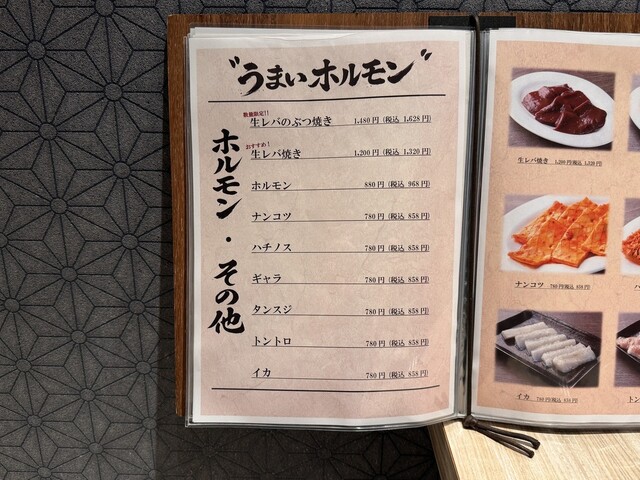 "うまいホルモン"
ホルモン・その他
数量限定!!
生レバのぶつ焼き 1,480円 (税込 1,628円)
おすすめ!
生レバ焼き 1,200円 (税込 1,320円)
ホルモン 880円 (税込 968円)
ナンコツ 780円 (税込 858円)
ハチノス 780円 (税込 858円)
ギャラ 780円 (税込 858円)
タンスジ 780円 (税込 858円)
トントロ 780円 (税込 858円)
イカ 780円 (税込 858円)
生レバ焼き 1,200円(税込 1,320円)
ナンコツ 780円(税込 858円)
イカ 780円(税込 858円)